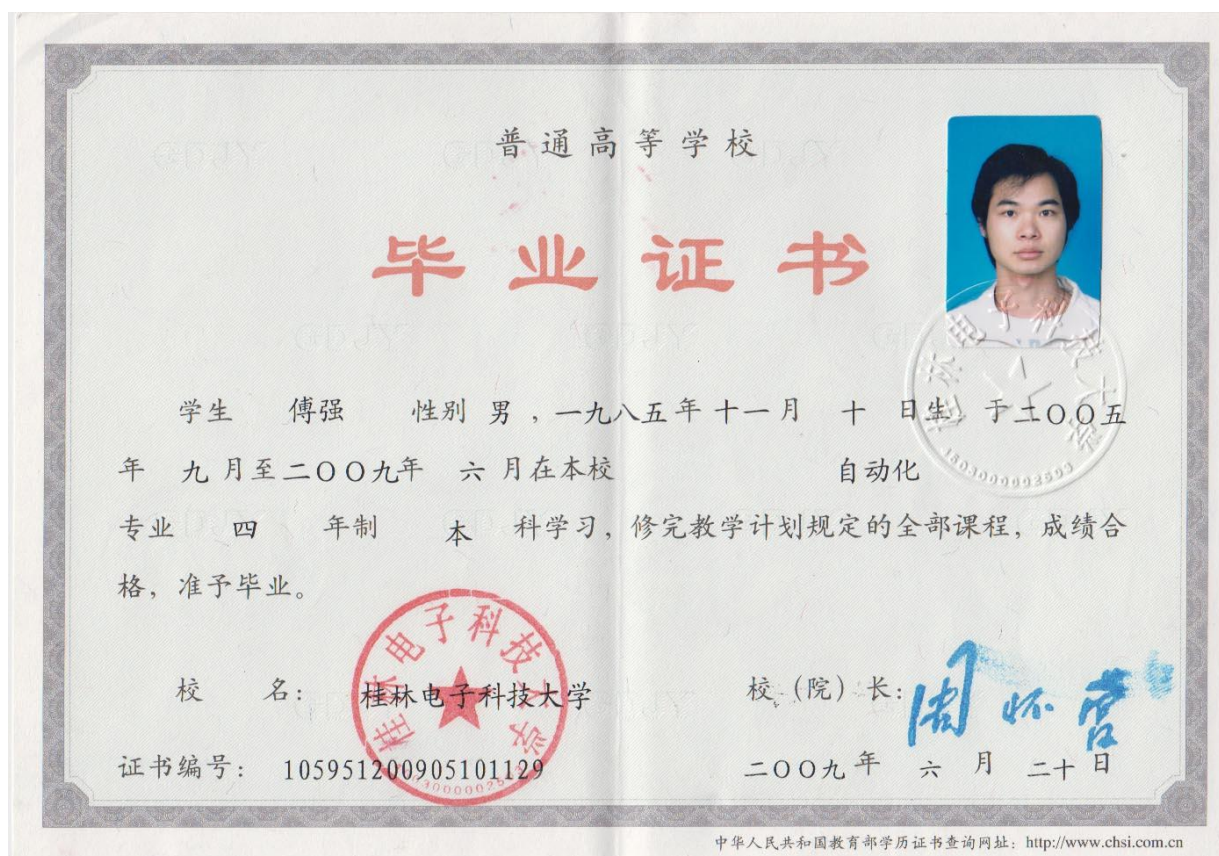 普通高等学校
毕业证书
学生 傅强 性别 男 ，一九八五年 十一月 十 日生 于二〇〇五
年 九 月至二〇〇九年 六 月在本校 自动化
专业 四 年制 本 科学习，修完教学计划规定的全部课程，成绩合
格，准予毕业。
校 名： 桂林电子科技大学
校（院）长： 周怀营
证书编号： 105951200905101129
二〇〇九年 六 月 二十日
桂林电子科技大学
桂林电子科技大学
中华人民共和国教育部学历证书查询网址：http://www.chsi.com.cn